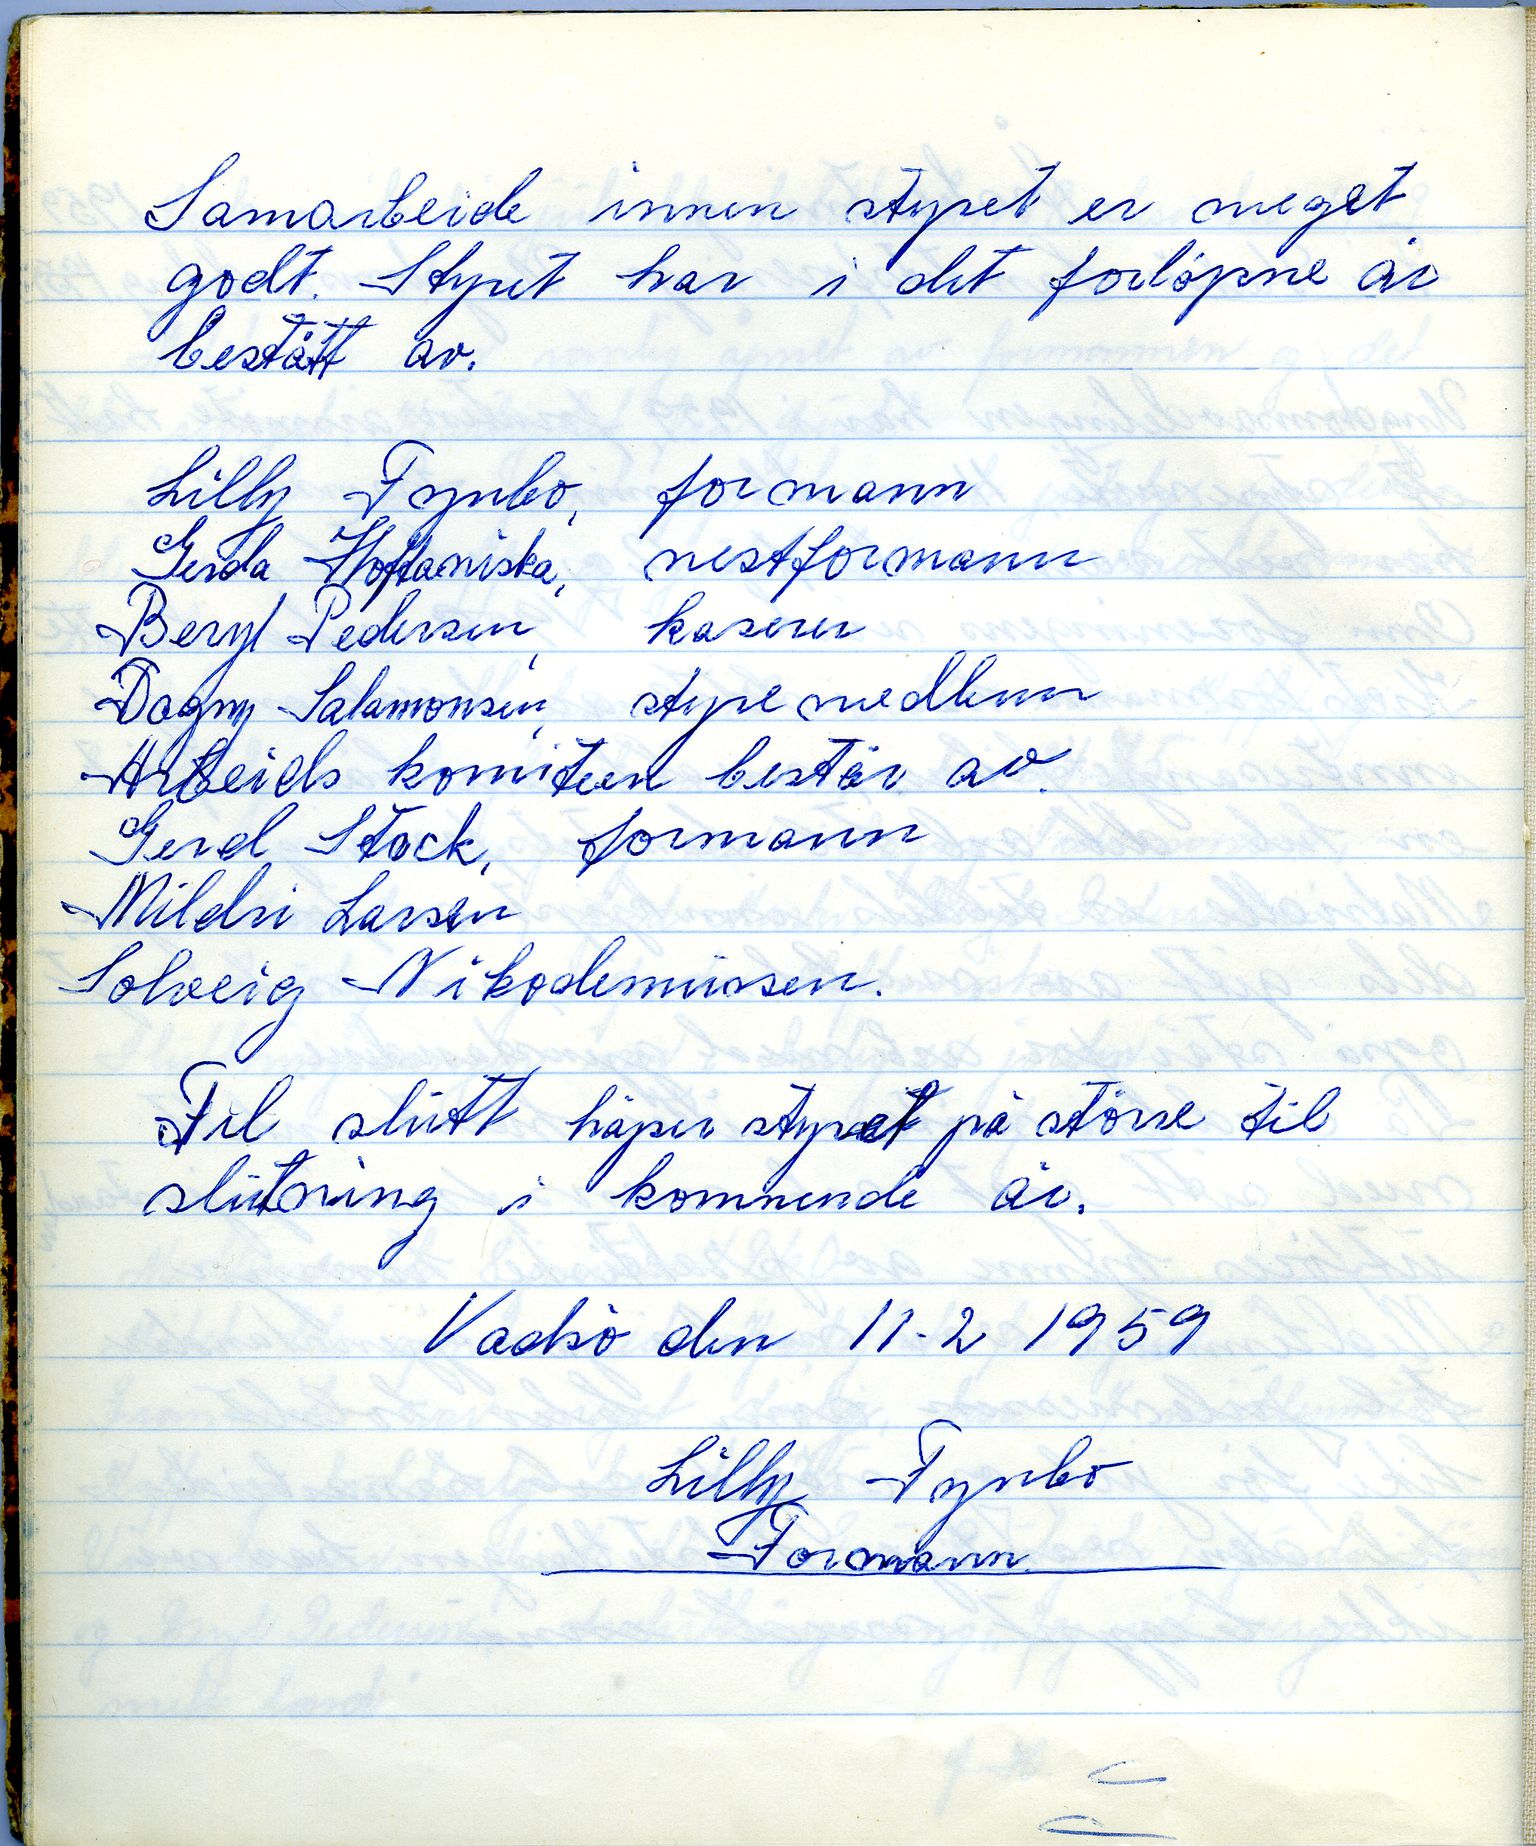 Samarbeide innen styret er meget
godt. Styret har i det forløpne år
bestått av.
Lilly Tynbo, formann
Gerda Hoftaniska, nestformann
Beryl Pedersen, kaserer
Dagny Salamonsen, styremedlem
Arbeids komiteen består av.
Gerd Stock, formann
Mildri Larsen
Solveig Nikodemussen.
Til slutt håper styret på större til
slutning i kommende år.
Vadsö den 11-2 1959
Lilly Tynbo
Formann.